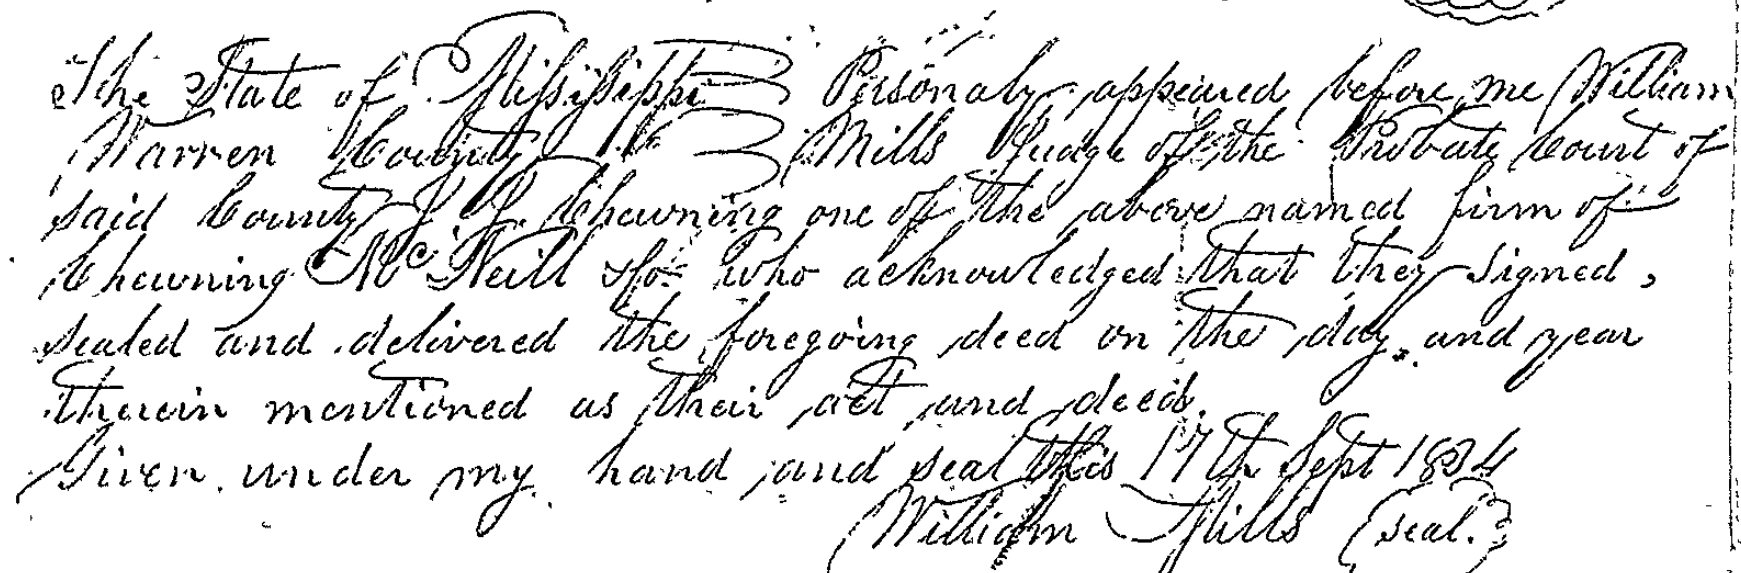 The State of Mississippi } Personaly appeared before me William
Warren County } Mills Judge of the Probate Court of
said County J. J. Chewning one of the above named firm of
Chewning McNeill & Co. who acknowledged that they signed,
sealed and delivered the foregoing deed on the day and year
therein mentioned as their act and deed.
Given under my hand and seal this 17th Sept 1834
William Mills (seal.)